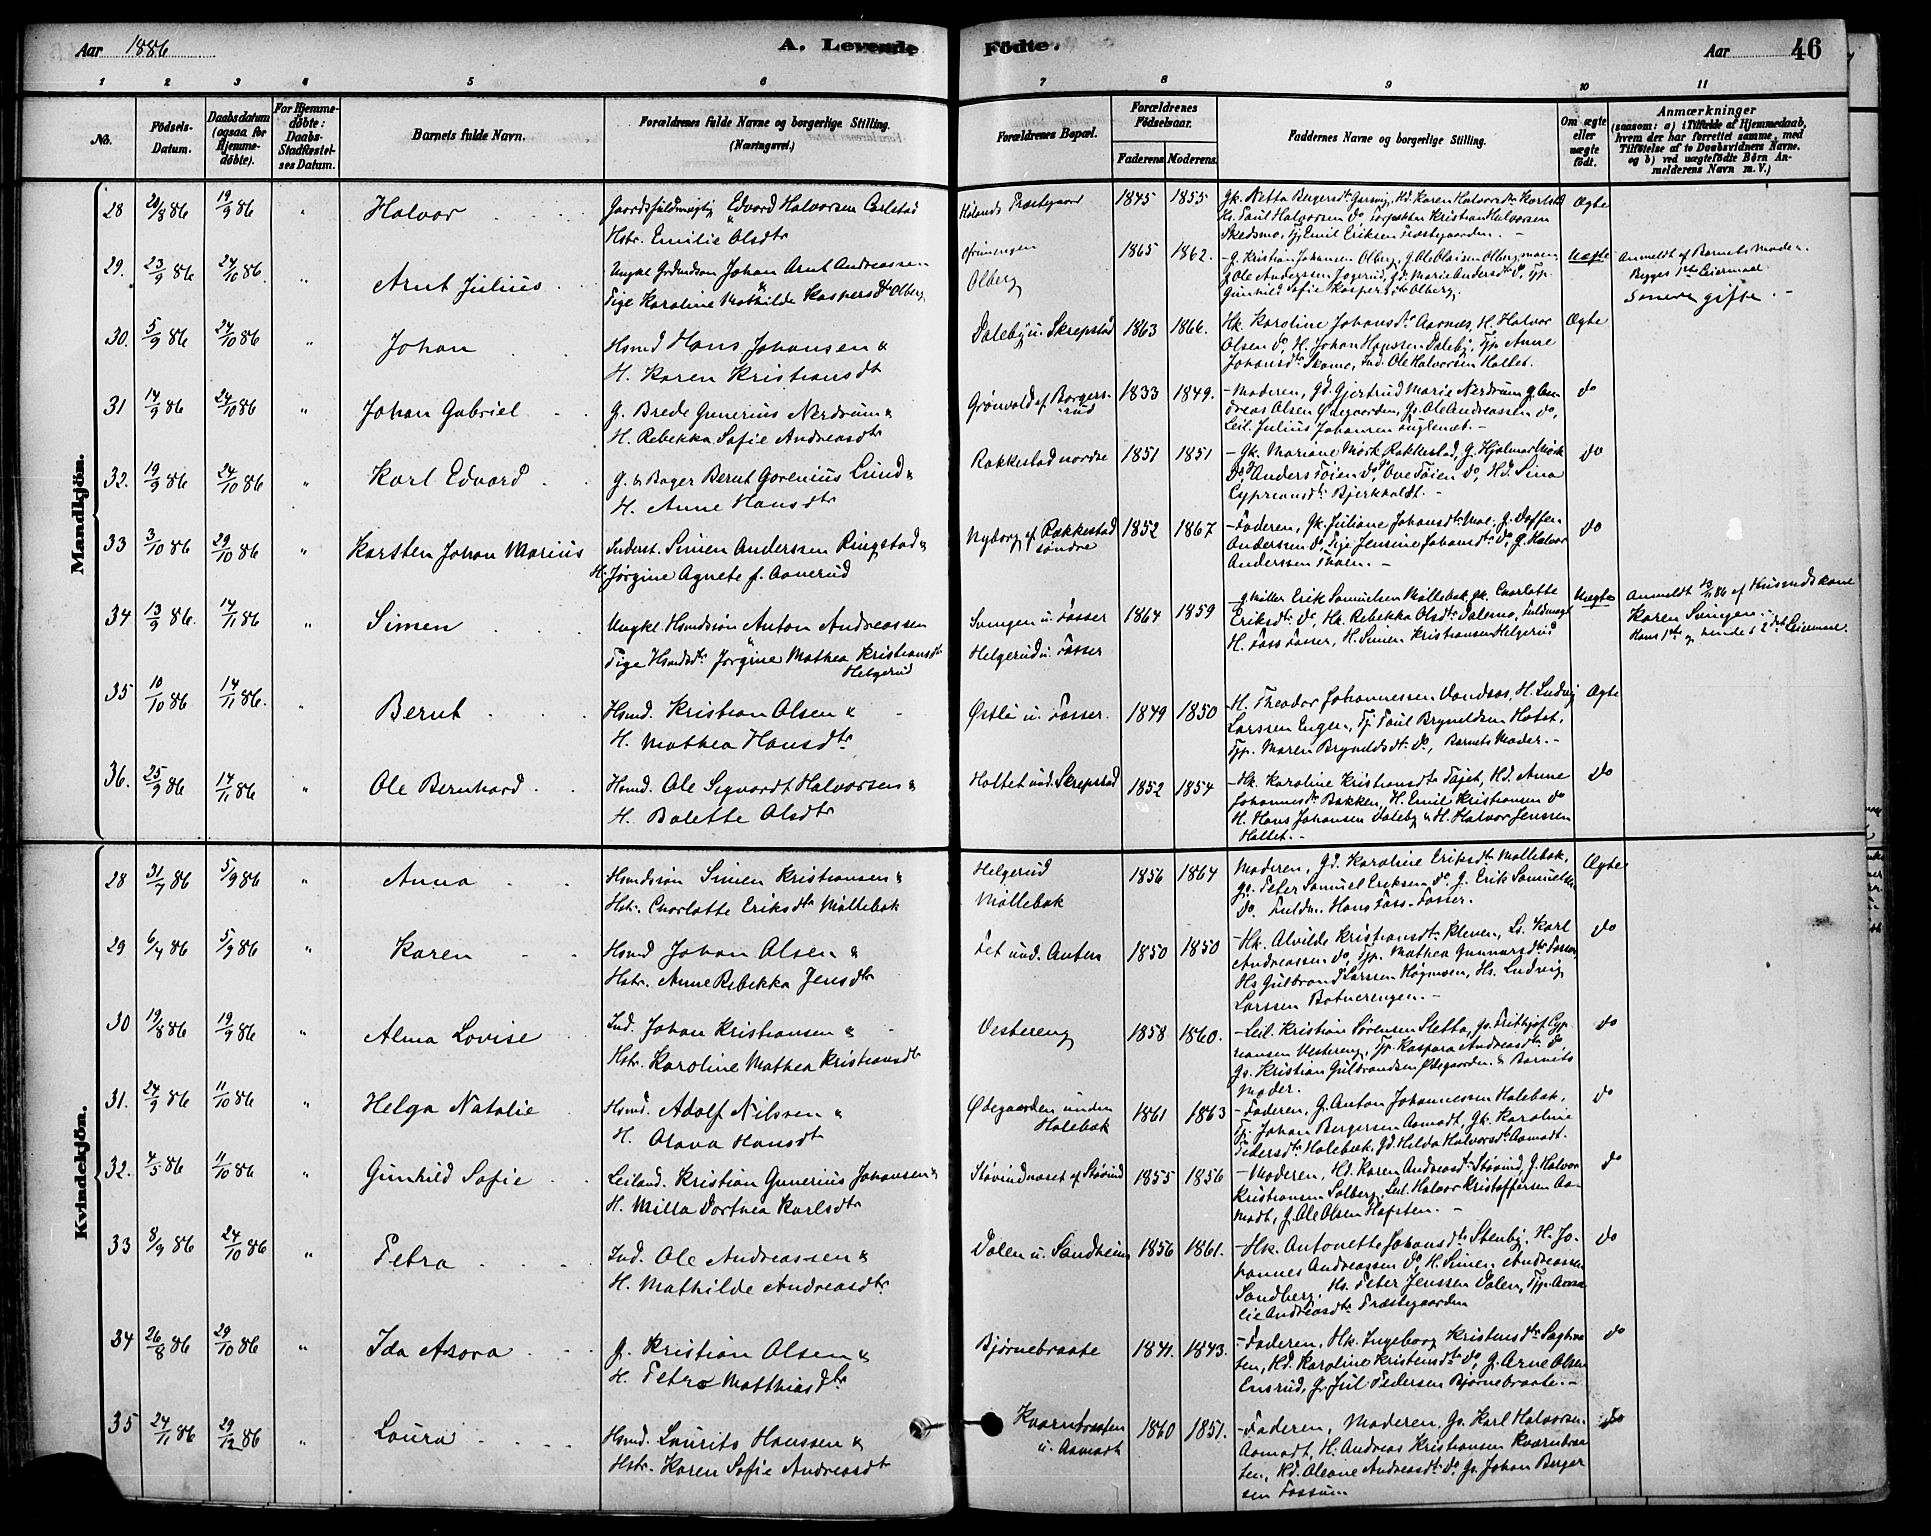 Aar 1886 A. Levende Födte. Aar 46
1 2 3 4 5 6 7 8 9 10 11
No.
Födsels-Datum.
Daabsdatum (ogsaa for Hjemmedöbte).
For Hjemmedöbte: Daabs-Stadfæstelses Datum.
Barnets fulde Navn.
Forældrenes fulde Navne og borgerlige Stilling. (Næringsvei.)
Forældrenes Bopæl.
Forældrenes Födselsaar.
Faderens. Moderens.
Faddernes Navne og borgerlige Stilling.
Om ægte eller uægte födt.
Anmærkninger
(saasom: a) i Tilfælde af Hjemmedaab, hvem der har forrettet samme, med Tilföielse af to Daabsvidners Navne, og b) ved uægtefödte Börn Anmelderens Navn m. V.)
Mandkjön.
28 20/8 86 19/9 86 " Halvor
Gaardsfuldmægtig Edvard Halvorsen Carlstad
Hstr. Emilie Olsdtr
Hølands Præstegaard 1845 1855
Skedsmo, Tj. Emil Eriksen Præstegaarden. Ægte
29. 23/9 86 24/10 86 " Arnt Julius
Ungkl. Grdmdsøn Johan Arnt Andreassen
Pige Karoline Mathilde Kaspersdtr Olberg
Olberg 1865 1862.
G. Kristian Johansen Olberg,
G. Ole Andersen Jogerud, Gd. Marie Andersdtr do, Tjp.
Gunhild Sofie Kaspersdtr Olberg. Uægte
Anmeldt af Barnets Moder.
Begges 1ste Leiermaal
Senere gifte. -
30. 5/9 86 24/10 86 " Johan
Hsmd Hans Johansen &
H. Karen Kristiansdtr
Daleby u. Skrepstad 1863 1866.
Hk. Karoline Johansdtr Aarnæs, H. Halvor
Olsen do, H. Johan Hanssen Daleby, Tjp. Anne
Johansdtr Skomo, Ind. Ole Halvorsen Holtet. Ægte
31 14/9 86 24/10 86 " Johan Gabriel
G. Brede Gunerius Nerdrum &
H. Rebekka Sofie Andreasdtr
Grønvold af Borgersrud 1833 1849.
- Moderen, Gd. Gjertrud Marie Nerdrum, G. Andreas Olsen Ødegaarden, Gs. Ole Andreassen do,
Leil. Julius Johansen Fuglenæb. - do
32. 19/9 86 24/10 86 " Karl Edvard
G. & Bager Bernt Gorenius Lund &
H. Anne Hansdtr
Rakkestad nordre 1851 1851
- Gk. Mariane Mørk Rakkestad, G. Hjalmar Mørk
do, Anders Toien do, Ove Toien do, Hd. Sina
Cypriansdtr Bjerkholdt. - do
33 3/10 86 29/10 86 " Karsten Johan Marius
Inderst. Simen Anderssen Ringstad &
H. Jørgine Agnete f. Aanerud
Nyborg af Rakkestad søndre 1852 1867
- Faderen, Gk. Juliane Johansdtr Moe, G. Doffen
Anderssen do, Pige Jensine Johansdtr do, G. Halvor
Anderssen Thoen. - do
34 13/9 86. 14/11 86 " Simen
Ungkl. Hsmdssøn Anton Andreassen
Pige Hsmdsdtr. Jørgine Mathea Kristiansdtr
Helgerud
Svingen u. Fosser
Helgerud u. Fosser 1864 1859
- G. Møller Erik Samuelsen Møllebæk, Gk. Charlotte
Eriksdtr do, Hk. Rebekka Olsdtr Dalsmo, Fuldmægt.
H. Foss Fosser, H. Simen Kristiansen Helgerud Uægte
Anmeldt 13/11 86 af Husmandskone
Karen Svingen. -
Hans 1ste og hendes 2det Leiermaal.
35 10/10 86 14/11 86. " Bernt
Hsmd. Kristian Olsen &
H. Mathea Hansdtr
Østli u. Fosser. 1849 1850
- H. Theodor Johannessen Vandsos, H. Ludvig
Larssen Enger, Tj. Paul Bryneldsen Hotet,
Tjp. Maren Bryneldsdtr do, Barnets Moder. - Ægte
36. 25/9 86 14/11 86 " Ole Bernhard
Hsmd. Ole Sigvardt Halvorsen &
H. Bolette Olsdtr
Holtet und. Skrepstad 1852 1854
- Hk. Karoline Kristiansdtr Fajet, Hd. Anne
Johannesdtr Bakken, H. Emil Kristiansen do
H. Hans Johansen Daleby & H. Halvor Jenssen
Holtet. - do
Kvindekjön.
28 31/7 86 5/9 86 " Anna
Hsmdssøn Simen Kristiansen &
Hstr. Charlotte Eriksdtr Møllebæk
Helgerud
Møllebæk 1856 1864
Moderen, Gd. Karoline Eriksdtr Møllebæk,
Gs. Peter Samuel Eriksen do, G. Erik Samuelsen
do. Fuldm. Hans Foss-Fosser. Ægte
29 5/9 86 " Karen
Hsmd Johan Olsen &
Hstr. Anne Rebekka Jensdtr
Fet und. Anten 1850 1850
- Hk. Alvilde Kristiansdtr Kleven, Ls. Karl
Andreassen do, Tjp. Mathea Gunnarsdtr Fosser
Hs Gulbrand Larssen Høgmosen, Hs. Ludvig
Larssen Botnerengen. - do
30 19/8 86 19/9 86 " Alma Lovise
Ind. Johan Kristiansen &
Hstr. Karoline Mathea Kristiansdtr
Vestereng 1858 1860.
- Leil. Kristian Sørensen Sletta, Gs. Frithjof Cyp
riansen Vestereng, Tjp. Kaspara Andreasdtr do,
Gs. Kristian Gulbrandsen Ødegaarden & Barnets
Moder. do
31. 24/9 86 11/10 86 Helga Natalie
Hsmd. Adolf Nilssen &
H. Olava Hansdtr
Ødegaarden under Holebæk 1861 1863
- Faderen, G. Anton Johannessen Holebæk,
Tj. Johan Bergersen Aamodt, Gk. Karoline
Pedersdtr Holebæk, Gd. Hilda Halvorsdtr Aamodt. do
32. 4/5 86 11/10 86 " Gunhild Sofie
Leiland. Kristian Gunerius Johansen &
H. Milla Dorthea Karlsdtr
Støvindnæset af Støvind 1855 1856
- Moderen, Hd. Karen Andreasdtr Støvind, G. Halvor
Kristiansen Solberg, Leil. Halvor Kristoffersen Aamodt, G. Ole Olsen Hofsten. - do
33 8/9 86 24/10 86 " Petra
Ind. Ole Andreassen &
H. Mathilde Andreasdtr
Dalen u. Sandheim 1856 1861.
- Hk. Antonette Johansdtr Stenby, H. Johannes Andreassen do, H. Simen Andreassen
Sandberg, Hs. Peter Jenssen Dalen, Tjp. Amalie Andreasdtr Præstegaarden do
34 26/8 86 29/10 86 " Ida Asora
G. Kristian Olsen &
H. Petra Matthiasdtr
Bjørnebraate 1841. 1843.
- Faderen, Hk. Ingeborg Kristensdtr Sagbraaten, Hd. Karoline Kristensdtr do, G. Arne Olsen
Ensrud, G. Jul Pedersen Bjørnebraate. - do
35 24/11 86 29/12 86 " Laura
Hsmd. Laurits Hanssen &
Hstr. Karen Sofie Andreasdtr
Kvernbraaten u. Aamodt 1860 1851.
- Faderen, Moderen, Gs. Karl Halvorsen
Aamodt, H. Andreas Kristiansen Kværnbraaten, Hd. Oleane Andreasdtr do, Gs. Johan Bergersen Fossum do